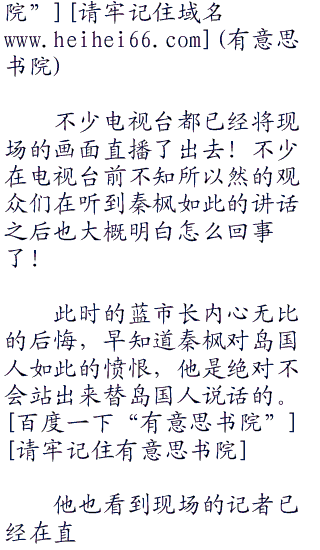 院”][请牢记住域名
www.heihei66.com](有意思
书院)
不少电视台都已经将现
场的画面直播了出去！不少
在电视台前不知所以然的观
众们在听到秦枫如此的讲话
之后也大概明白怎么回事
了！
此时的蓝市长内心无比
的后悔，早知道秦枫对岛国
人如此的愤恨，他是绝对不
会站出来替岛国人说话的。
[百度一下“有意思书院”]
[请牢记住有意思书院]
他也看到现场的记者已
经在直